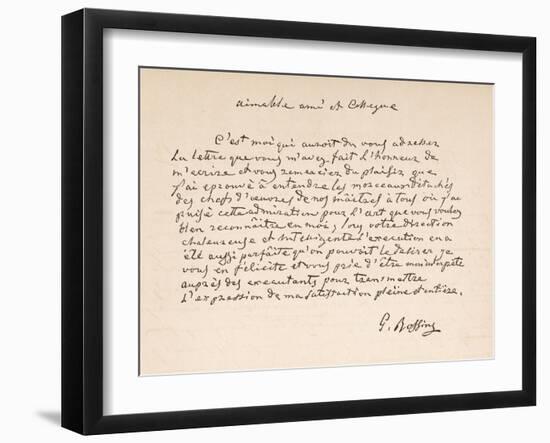 aimable ami et Collegue
C'est moi qui auroit du vous adresser
La lettre que vous m'avez fait l'honneur de
m'ecrire et vous remercier du plaisir que
j'ai eprouvé a entendre les morceaux détachés
des chefs d'œuvres de nos maîtres à tous où j'ai
puisé cette admiration pour l'art que vous voulez
bien reconnaître en moi; sous votre direction
chaleureuse et intelligente l'execution en a
été aussi parfaite qu'on pouvoit le desirer je
vous en félicite et vous prie d'être mon interprète
auprès des executants pour transmettre
L'expression de ma satisfaction pleine et entière.
G. Rossini